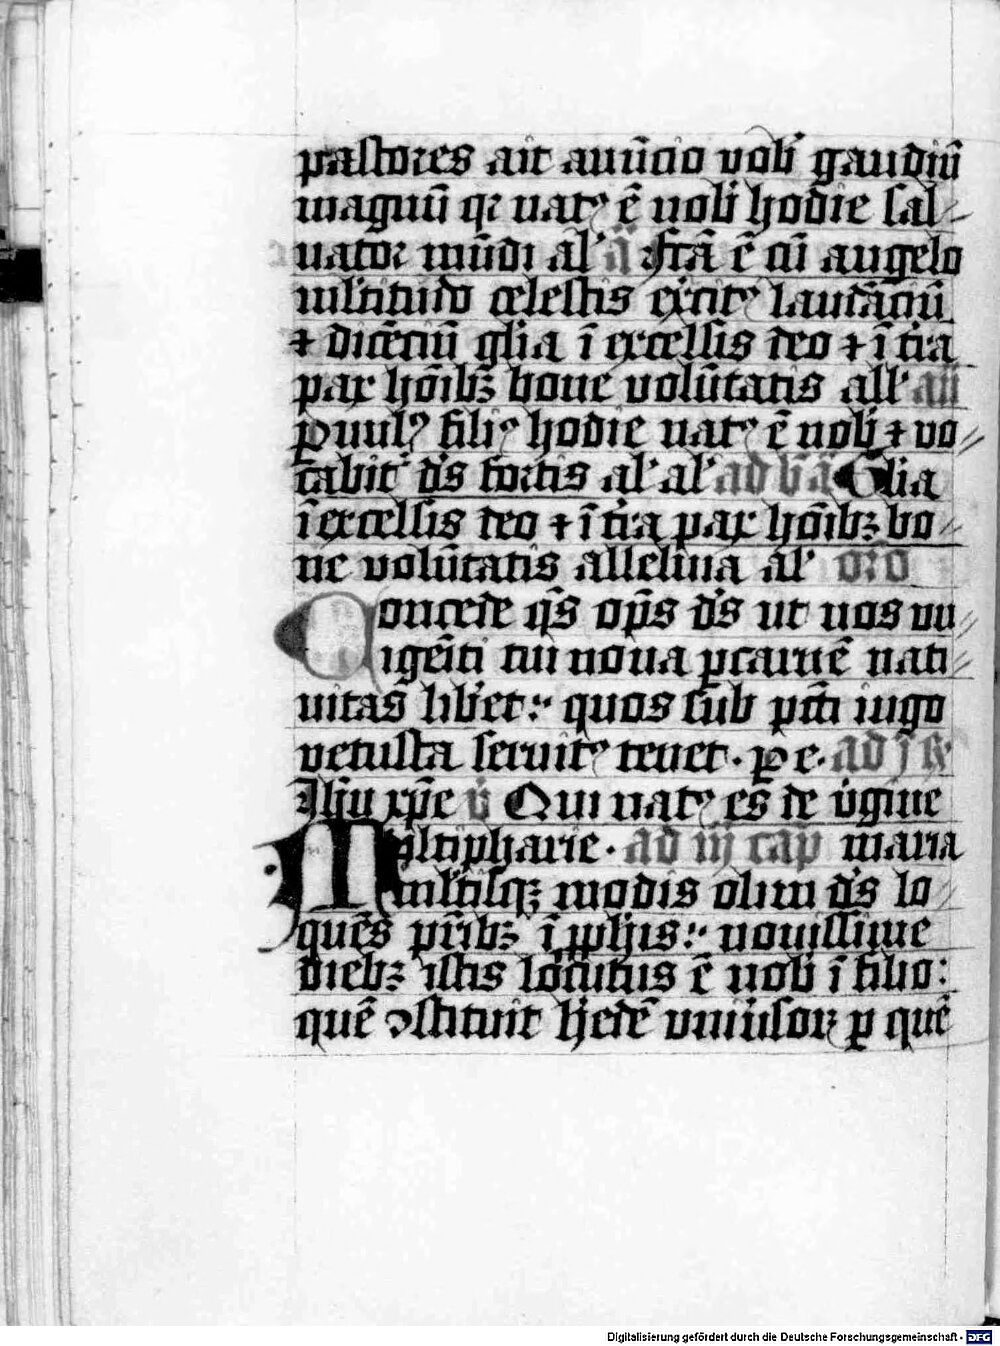 pastores ait anūcio vob̄ gaudiū
magnū qꝛ natꝰ ē uob̄ hodie sal⸗
uator mūdi al̓ a᷑ Fc̄a ē cū angelo
ml̓titudo celestis ex̓citꝰ laudāciū
⁊ dicēciū gl̓ia ī excelsis deo ⁊ ī t̓ra
pax hōibꝫ bone volūtatis all̓ añ
Puulꝰ filiꝰ hodie natꝰ ē nob̄ ⁊ vo⸗
cabit᷑ ds̄ fortis al̓ al̓ ad b̄ a᷑ Gl̓ia
ī excelsis deo ⁊ ī t̓ra pax hōibꝫ bo⸗
ne volūtatis alleluia al̓ oro
Concede qs̄ op̄s ds̄ ut nos vn⸗
igēiti tui noua ꝑ carnē nati⸗
uitas lib̓et: quos sub pc̄ti iugo
vetusta seruitꝰ tenet. ꝑ e. ad j ℟
Ih̄u xp̄e v̄ Qui natꝰ es de v̓gine
Multipharie. ad iij cap̄ maria
ml̓tisqꝫ modis olim ds̄ lo⸗
quēs pr̄ibꝫ ī ꝓph̄is: nouissime
diebꝫ istis locutus ē nob̄ ī filio:
quē ꝯstituit h̓edē vniu̓soꝝ ꝑ quē
Digitalisierung gefördert durch die Deutsche Forschungsgemeinschaft - DFG